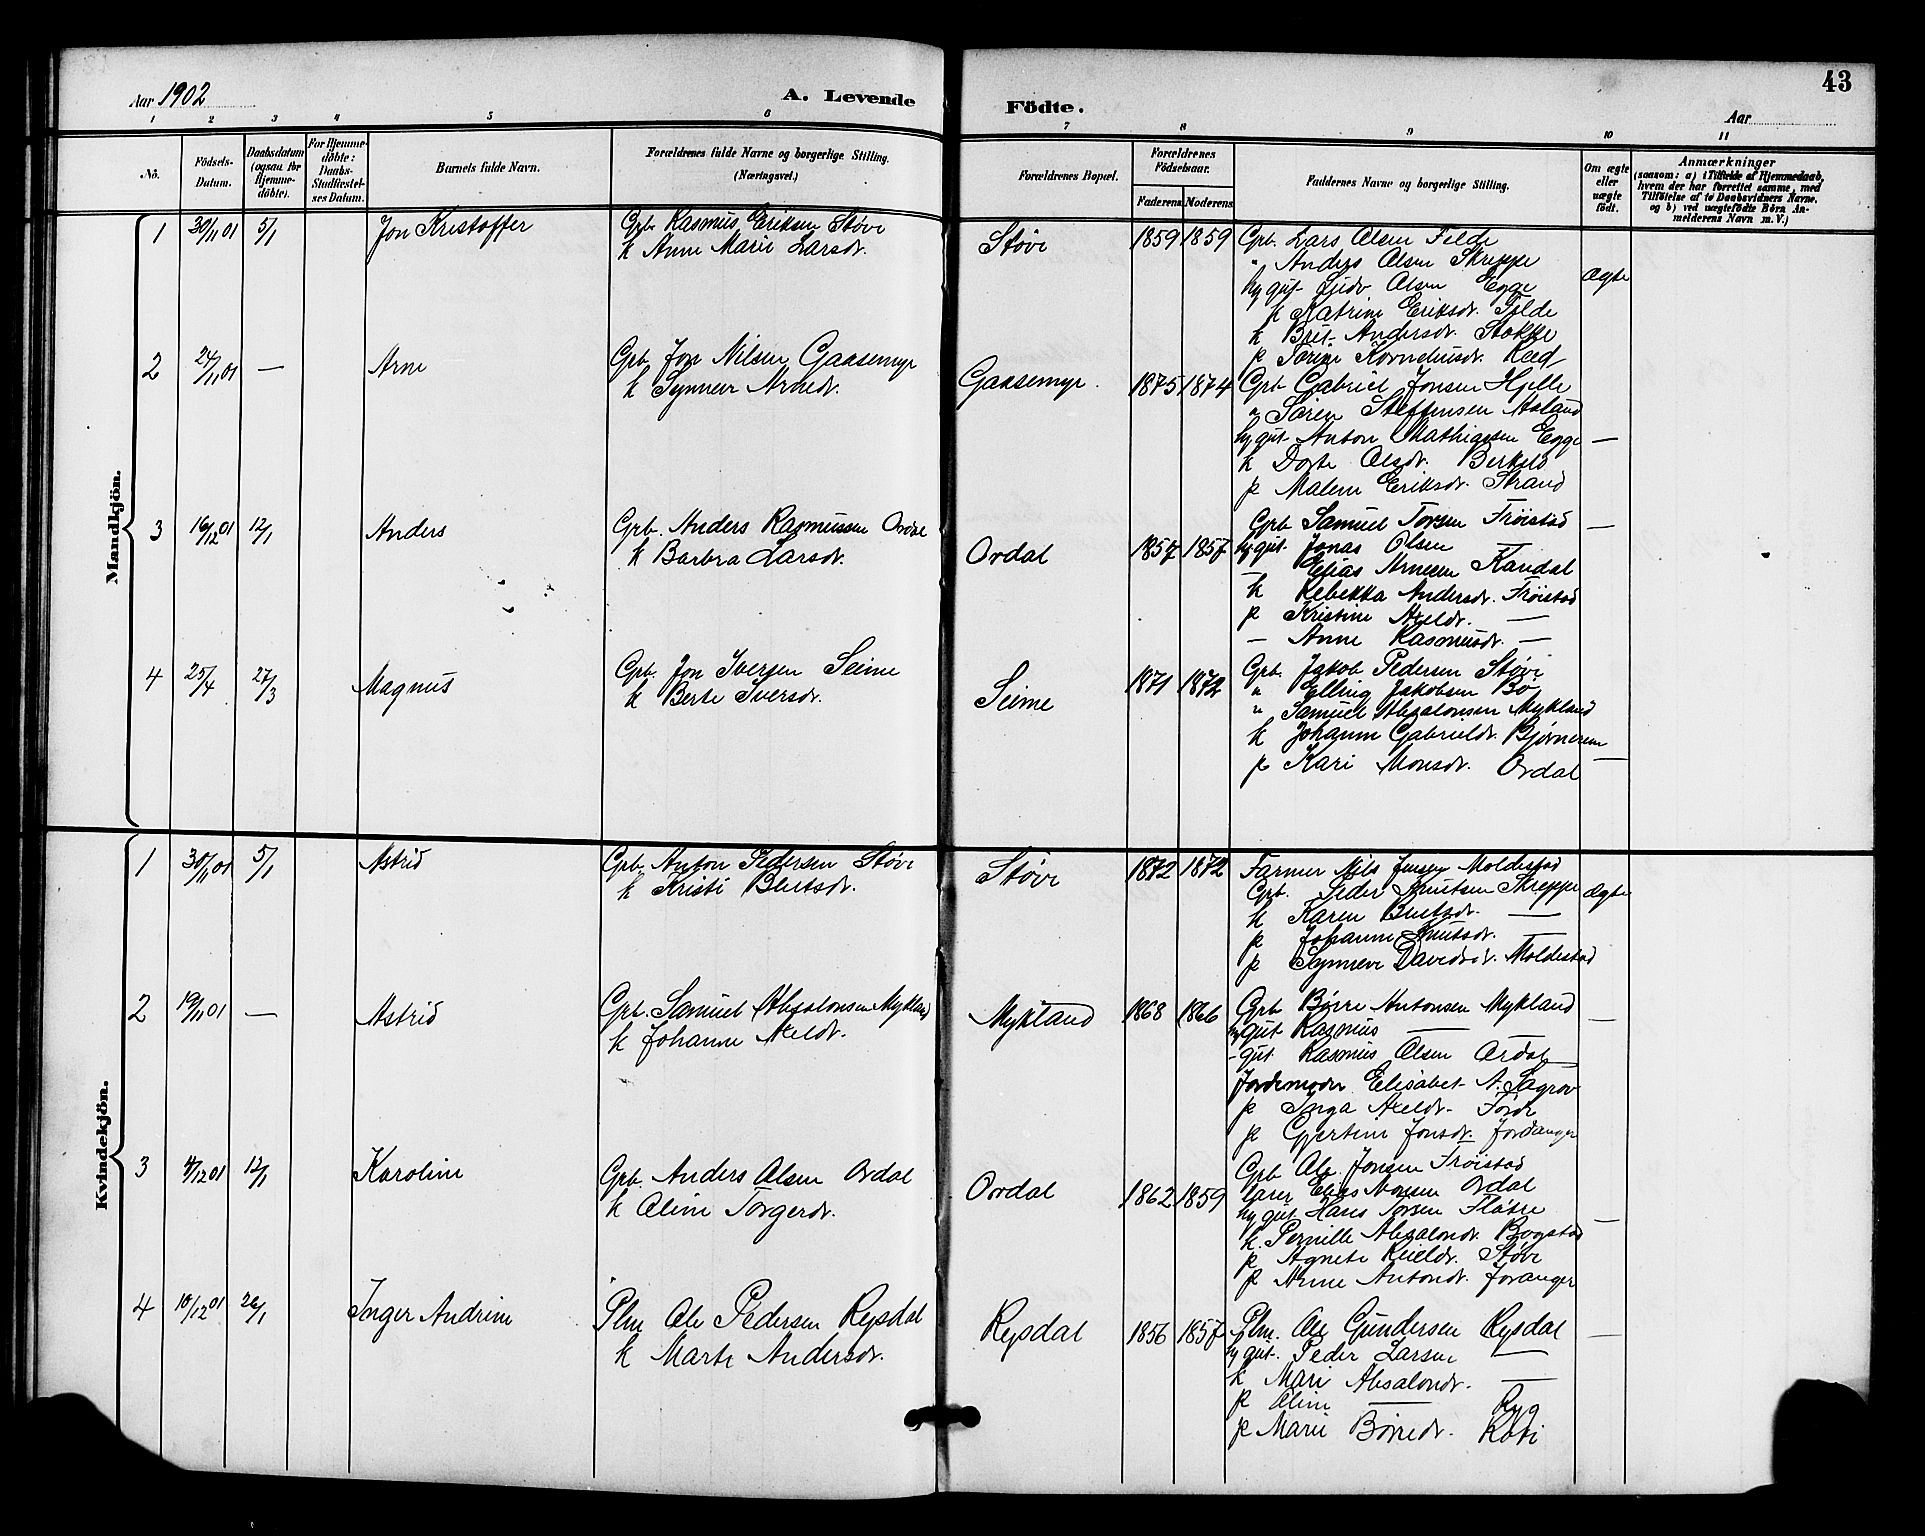 43
Aar 1902
A. Levende Födte.
Aar
1 2 3 4 5 6 7 8 9 10 11
No.
Födsels-Datum.
Daabsdatum (ogsaa for Hjemme-döbte).
For Hjemme-döbte: Daabs-Stadfæstel-ses Datum.
Barnets fulde Navn.
Forældrenes fulde Navne og borgerlige Stilling. (Næringsvei.)
Forældrenes Bopæl.
Forældrenes Födselsaar.
Faderens Moderens
Faddernes Navne og borgerlige Stilling.
Om ægte eller uægte födt.
Anmærkninger
(saasom: a) i Tilfælde af Hjemmedaab, hvem der har forrettet samme, med Tilföielse af to Daabsvidners Navne. og b) ved uægtefödte Börn An-melderens Navn m. V.)
Mandkjön.
1 30/11 01 5/1 Jon Kristoffer
Grb. Rasmus Eriksen Støve
k Anne Marie Larsdr.
Støve 1859 1859
Grb. Lars Olsen Felde
" Anders Olsen Skreppe
k Katrine Eriksdr. Felde
k Brit Andersdr. Stokke
Ægte
2 24/11 01 — Arne
Grb Jon Nilsen Gaasemyr
k Synneve Arnedr.
Gaasemyr. 1875 1874
Grb Gabriel Jonsen Hjelle
" Søren Steffensen Aaland
ug gut Anton Mathiasen Egge —
k Dorte Olsdr. Berkelo
p Malene Eriksdr. Strand
3 16/12 01 12/1 Anders
Grb. Anders Rasmussen Ordal
k Barbra Larsdr.
Ordal 1857 1857
Grb Samuel Torsen Frøistad —
ug gut. Jonas Olsen —
— Elias Arnesen Kandal
k Rebekka Andersdr. Frøistad
p Kristine Axeldr. —
— Anne Rasmusdr. —
4 25/4 27/3 Magnus
Grb. Jon Iversen Seime
k Berte Iversdr.
Seime 1871 1872
Grb. Jakob Pedersen Støve
" Elling Jakobsen Bø
" Samuel Absalonsen Mykland
k Johanne Gabrieldr. Bjørnereim
p Kari Monsdr. Ordal —
Kvindekjön.
1 30/11 01 5/1 Astrid
Grb. Anton Pedersen Støve
k Kristi Bentsdr.
Støve 1872 1872
Farmer Nils Jensen Moldestad
Grb. Peder Knutsen Skreppe
k Karen Bentsdr. —
p Johanne Knutsdr. —
p Synneve Davidsdr. Moldestad
Ægte
2 19/11 01 — Astrid
Grb. Samuel Absalonsen Mykland
k Johanne Axeldr.
Mykland 1868 1866
Grb Børre Antonsen Mykland
ug gut Rasmus —
- gut. Rasmus Olsen Ordal
Jordemoder Elisabet A. Sagrov
p Inga Axeldr. Førde
p Gjertine Jonsdr. Jordanger
—
3 4/12 01 12/1 Karoline
Grb. Anders Olsen Ordal
k Oline Torgerdr.
Ordal 1862 1859
Grb Ole Jonsen Frøistad
lærer Elias Monsen Ordal
ug gut Hans Torsen Fløtre
k. Pernille Absalondr. Bogstad
p Agnete Reieldr. Støve
p Anne Antondr. Joranger
—
4 10/12 01 26/1 Inger Andrine
Plm Ole Pedersen Rysdal
k Marte Andersdr.
Rysdal 1856 1857
Plm. Ole Gundersen Rysdal
ug gut. Peder Larsen —
k Mari Absalondr. —
p Oline — Ryg
p Marie Børredr. Købi
—